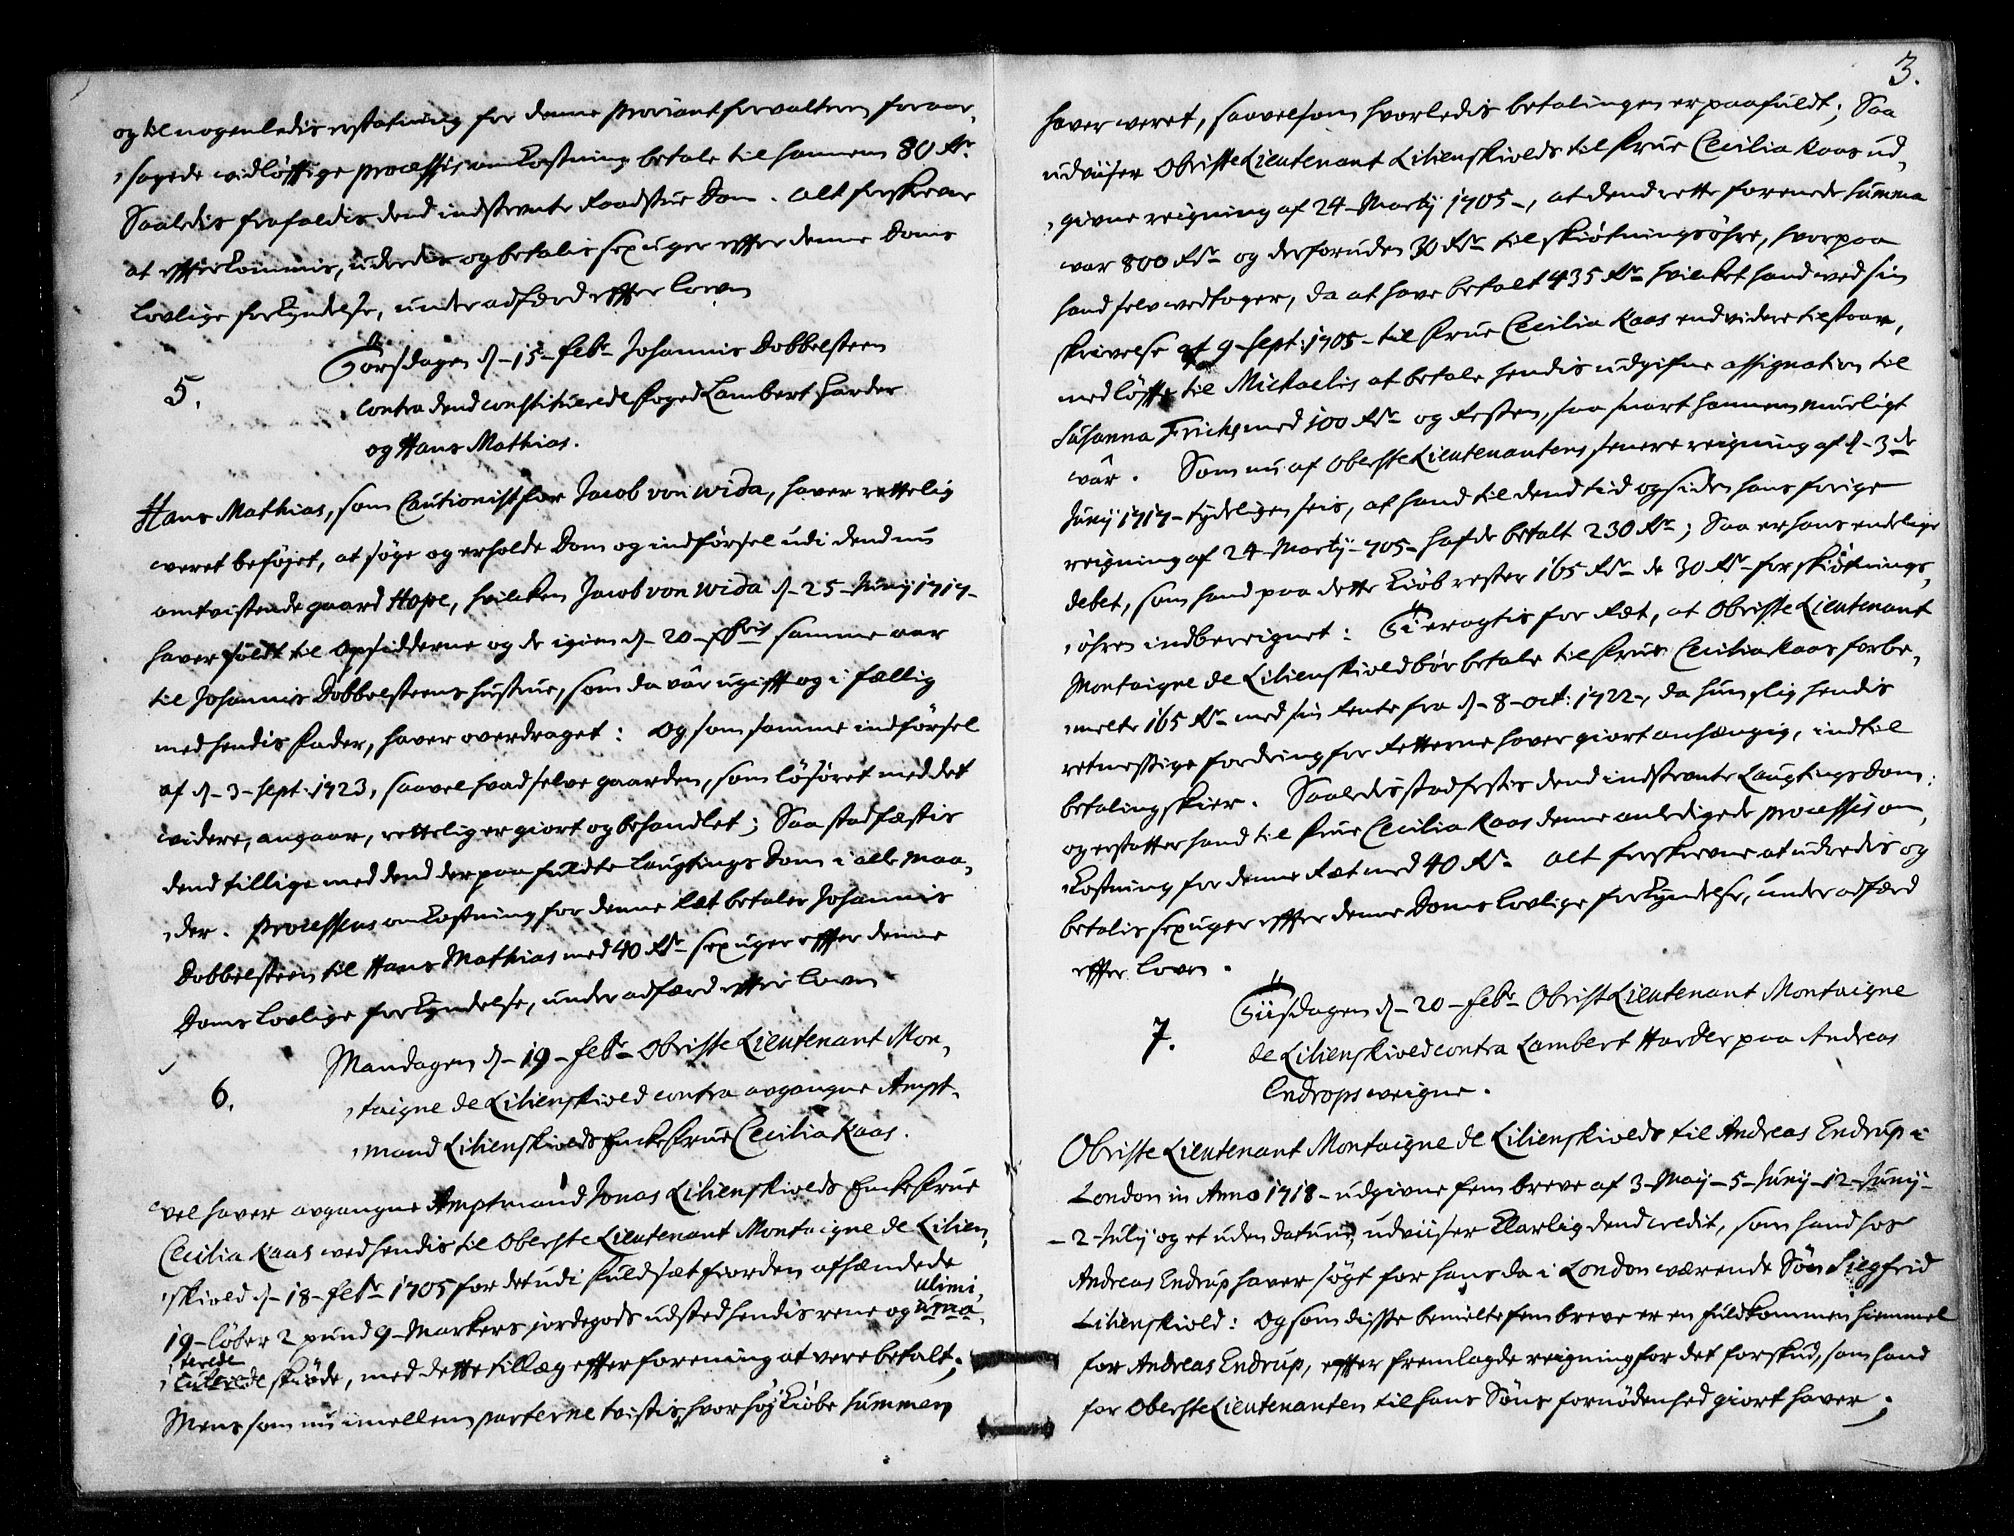 og til nogenledis erstatning for denne Proviantforvalteren foraar,
,sagede vidløfftige processis omkostning betale til hannem 80 Rdr
Saaledis frafaldis dend indstevnte Raadstue Dom. Alt forskrevne
at efterkommis, uderedis og betalis sex uger effter denne Doms
Lovlige forkyndelse, under adfærd effter Loven
5.
Torsdagen d. 15 Febr Johannis Dobbelsteen
contra dend constituerede Foged Lambert Harder
og Hans Mathias.
Hans Mathias, som Cautionist for Jacob von Wida, haver rettelig
veret beføjet, at søge og erholde Dom og indførsel udi dend nu
omtvistende gaard Hope, hvilken Jacob von Wida d. 25 Junij 1717
haver soldt til Opsidderne og de igien d. 20 samme aar
til Johannis Dobbelsteens hustrue, som da vâr ugifft og i fællig
med hendis Fader, haver overdraget: Og som samme indførsel
af d. 3 Sept. 1723, saavel hvad selve gaarden, som løsøret med det
widere, angaar, rettelig er giort og behandlet; Saa stadfæstis
dend tillige med dend derpaa fuldte Laugtings Dom i alle maa,
,der. Processens omkostning for denne Ræt betaler Johannis
Dobbelsteen til Hans Mathias med 40 Rdr sex uger effter denne
Doms Lovlige forkyndelse, under adfærd effter Loven
6.
Mandagen d. 19 Febr Obriste Lieutenant Mon,
,taigne de Lilienskiold contra avgangne Ampt,
,mand Lilienskiolds Enke Frue Cecilia Kaas.
Vel haver avgangne Amptmand Jonas Lilienskiolds Enke Frue
Cecilia Kaas ved hendis til Oberste Lieutenant Montaigne de Lilien,
,skiold d. 18 Febr 1705 for det udi Kuldsæt fiorden afhændede
19 løber 2 pund 9 Markers jordegods udsted hendis rene og ulimi,
,terede skiøde, med dette tillæg effter forening at vere betalt;
Mens som nu imellem parterne tvistis, hvor høj kiøbe summen
3.
haver veret, saavelsom hvorledis betalingen er paafuldt; Saa
udviiser Obriste Lieutenant Lilienskiolds til Frue Cecilia Kaas ud,
,givne reigning af 24 Martij 1705, at dend rette forenede summa
var 800 Rdr og desforuden 30 Rdr til skiøtningsøhre, hvorpaa
hand selv vedtager, da at have betalt 435 Rdr hvilket hand ved sin
skrivelse af 9 Sept. 1705 til Frue Cecilia Kaas endvidere tilstaar,
med løffte til Michaelis at betale hendis udgifne assignation til
Susanna Frichs med 100 Rdr og Resten, saa snart hannem mueligt
vâr. Som nu af Oberste Lieutenantens senere reigning af d. 3de
Junij 1717 tydeligen seis, at hand til dend tid og siden hans forige
reigning af 24 Martij 705 hafde betalt 230 Rdr; Saa er hans endelige
debet, som hand paa dette kiøb rester 165 Rdr de 30 Rdr for skiøtnings,
,øhren indbereignet: Ti eragtis for Ræt, at Obriste Lieutenant
Montaigne de Lilienskiold bør betale til Frue Cecilia Kaas forbe,
,melte 165 Rdr med sin Rente fra d. 8 Oct: 1722, da hun slig hendis
retmessige fordring for Retterne haver giort anhængig, indtil
betaling skier. Saaledis stadfestis dend indstevnte Laugtings Dom:
og erstatter hand til Frue Cecilia Kaas denne anledigede processis om,
,kostning for denne Ræt med 40 Rdr. Alt forskrevne at uderedis og
betalis sex uger effter denne Doms Lovlige forkyndelse, under adfærd
effter Loven.
7.
Tiisdagen d. 20 Febr Obrist Lieutenant Montaigne
de Lilienskiold contra Lambert Harder paa Andreas
Endrops veigne.
Obriste Lieutenant Montaigne de Lilienskiolds til Andreas Endrup i
London in Anno 1718 udgivne fem breve af 3 Maij 5 Junij 12 Junij
2 Julij og et uden datum, udviiser klarlig dend credit, som hand hos
Andreas Endrup haver søgt for hans da i London værende Søn Siegfrid
Lilienskiold: Og som disse bemelte fem breve er en fuldkommen hiemmel
for Andreas Endrup, effter fremlagde reigning for det forskud, som hand
for Oberste Lieutenanten til hans Søns fornødenhed giort haver;